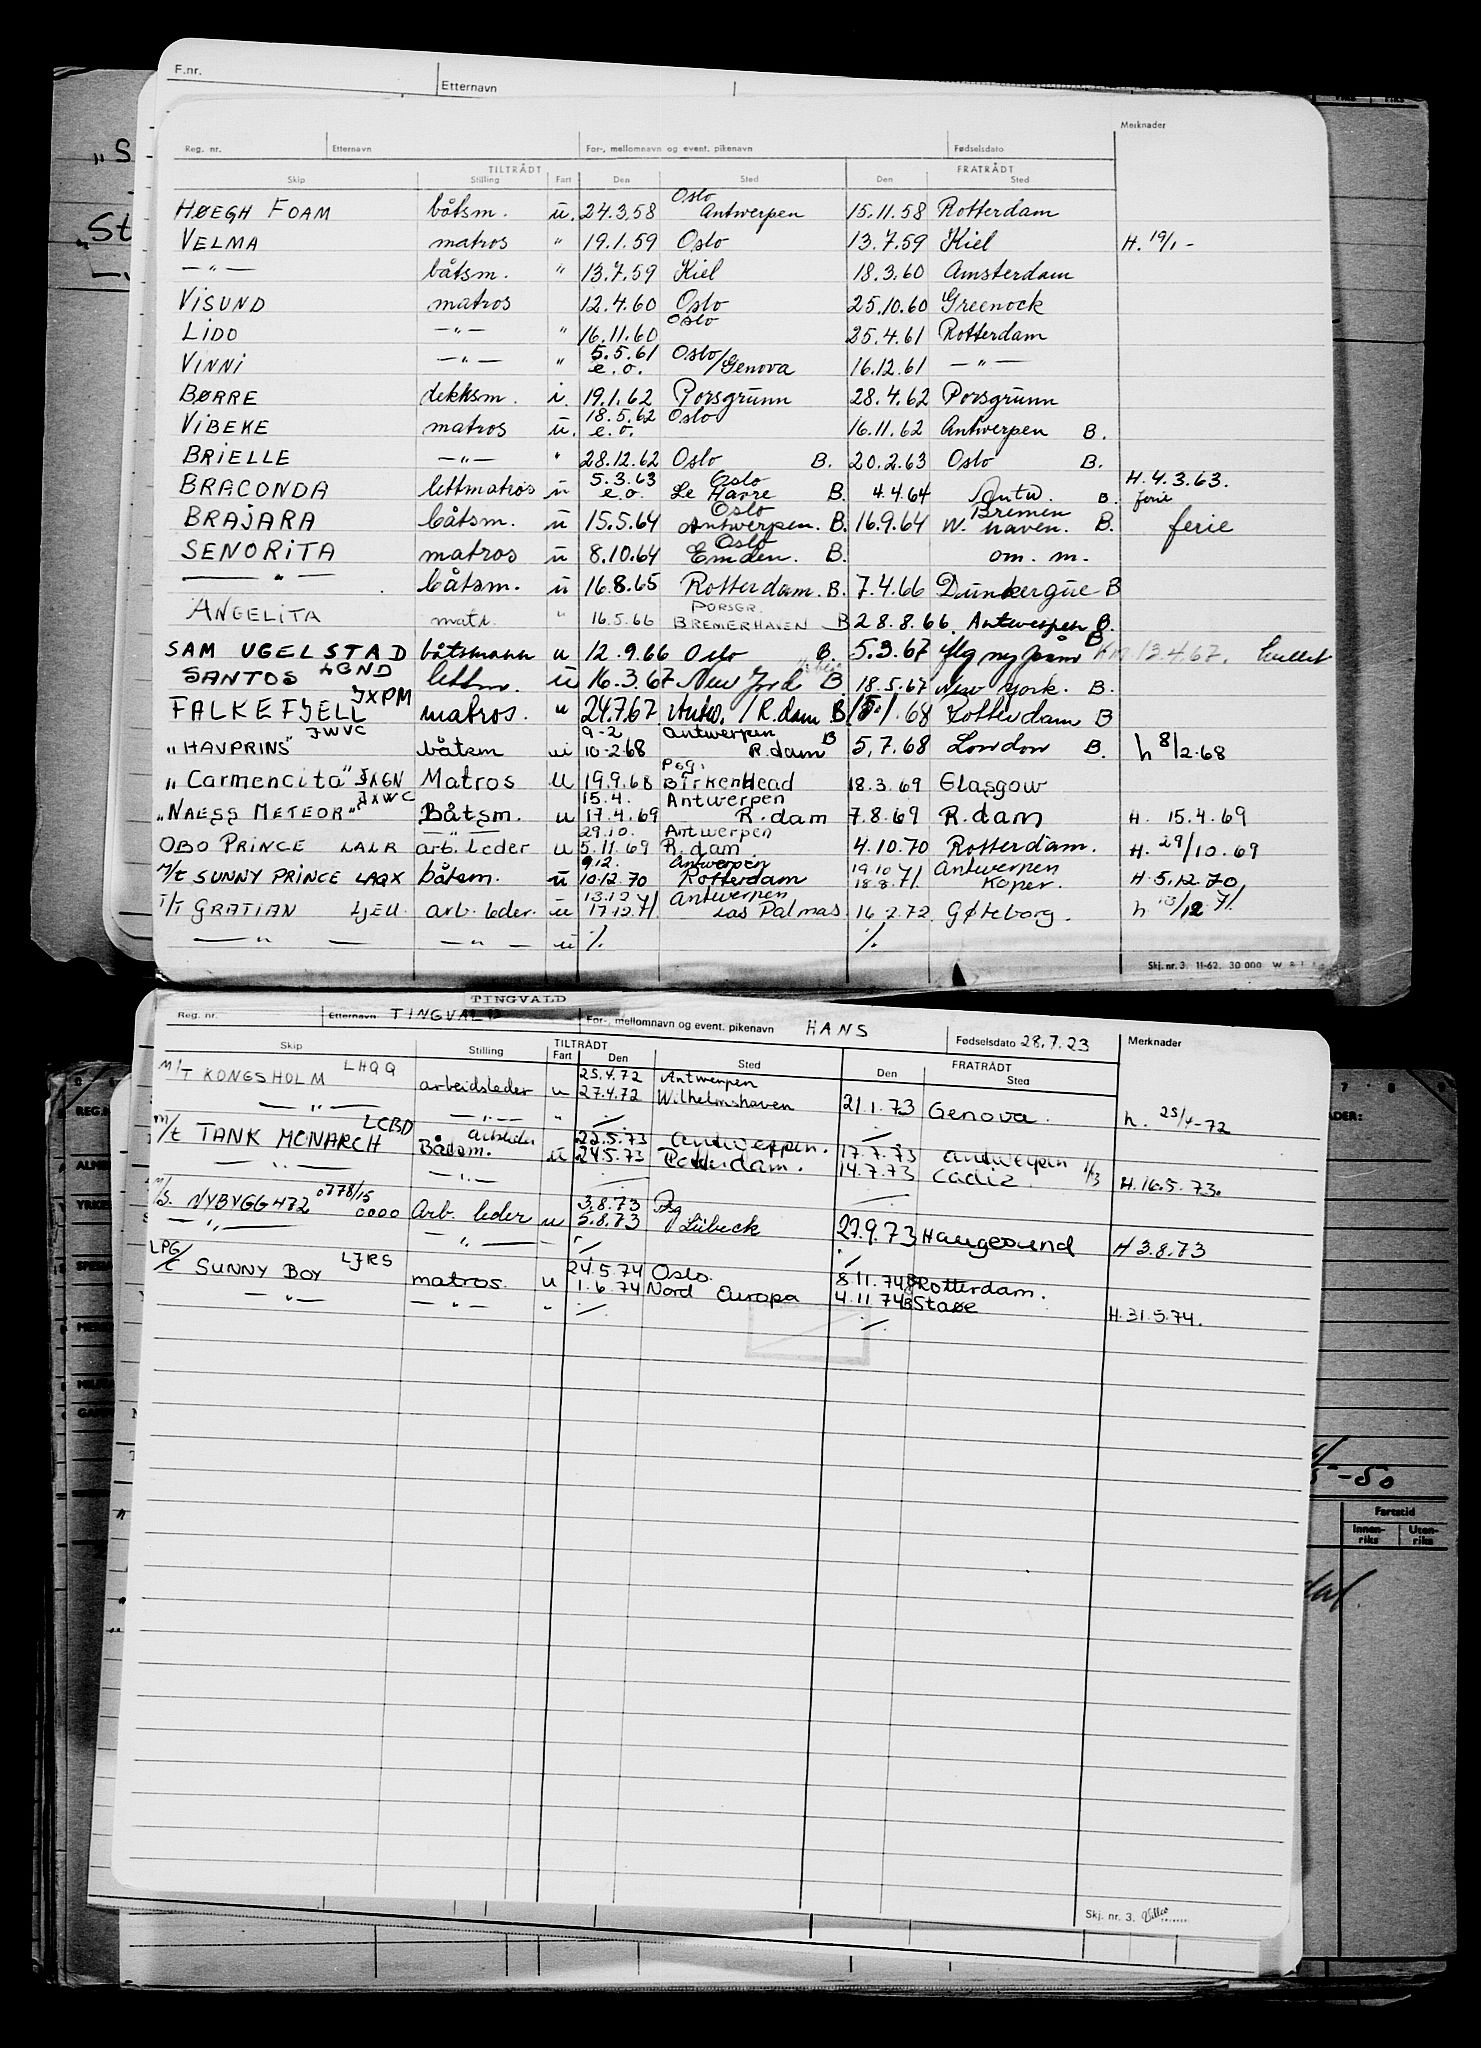 F.nr. Etternavn
Merknader
Reg. nr. Etternavn For-, mellomnavn og event. pikenavn Fødselsdato
TILTRÅDT FRATRÅDT
Skip Stilling Fart Den Sted Den Sted
Oslo
HØEGH FOAM båtsm. u. 24.3.58 Antwerpen 15.11.58 Rotterdam
VELMA matros " 19.1.59 Oslo 13.7.59 Kiel H. 19/1 -
— " — båtsm. " 13.7.59 Kiel 18.3.60 Amsterdam
VISUND matros 12.4.60 Oslo 25.10.60 Greenock
LIDO — " — " 16.11.60 Oslo 25.4.61 Rotterdam
5.5.61 Oslo
VINNI — " — " e.o. /Genova 16.12.61 — " —
BØRRE dekksm. i. 19.1.62 Porsgrunn 28.4.62 Porsgrunn
18.5.62 Oslo
VIBEKE matros u. e.o. 16.11.62 Antwerpen B.
BRIELLE — " — " 28.12.62 Oslo B. 20.2.63 Oslo B.
5.3.63 Oslo H. 4.3.63.
BRACONDA lettmatros u e.o. Le Havre B. 4.4.64 Antw. B. ferie
Oslo Bremen
BRAJARA båtsm. u 15.5.64 Antwerpen. B. 16.9.64 W. haven. B. ferie
Oslo
SENORITA matros u 8.10.64 Emden. B. om. m.
— " — båtsm. u 16.8.65 Rotterdam. B. 7.4.66 Dunkergue B
PORSGR.
ANGELITA matr. " 16.5.66 BREMERHAVEN B 28.8.66 Antwerpen B.
SAM UGELSTAD båtsmann u 12.9.66 Oslo B. 5.3.67 flg ny B 13.4.67.
SANTOS LGND lettm. u 16.3.67 New York B 18.5.67 New York. B.
JXPM
FALKEFJELL matros. u 24.7.67 Antw. / R.dam B 15.1.68 Rotterdam B
JWVC 9-2 Antwerpen
"HAVPRINS" båtsm u 10-2.68 R.dam B 5.7.68 London B. h 8/2-68
Psg.
"Carmencita" JXGN Matros u 19.9.68 BirkenHead 18.3.69 Glasgow
JXWC 15.4. Antwerpen
"NAESS METEOR" Båtsm. u 17.4.69 R.dam 7.8.69 R.dam H. 15.4.69
29.10. Antwerpen
OBO PRINCE LALR arb. leder u 5.11.69 R.dam 4.10.70 Rotterdam. H. 29/10.69
9.12. Antwerpen 19.10 Antwerpen
M/t SUNNY PRINCE LAQX båtsm. u 10.12.70 Rotterdam 18.8.71. Koper. H.5.12.70
13.12 Antwerpen
T/T GRATIAN LJEU. arb. leder. u 17.12.71 Las Palmas 16.2.72 Gøteborg. h 13/12 71.
— " — — " — u ./. ./.
Skj. nr. 3. 11-62. 30 000
TINGVALD
Reg. nr. Etternavn TINGVALD For-, mellomnavn og event. pikenavn HANS Fødselsdato 28.7.23 Merknader
TILTRÅDT FRATRÅDT
Skip Stilling Fart Den Sted Den Sted
25.4.72 Antwerpen
M/T KONGSHOLM LHQQ arbeidsleder u 27.4.72 Wilhelmshaven 21.1.73 Genova. h. 25/4-72
— " — — " — " ./. ./.
LCBD arbleder 22.5.73 Antwerpen. 17.7.73 Antwerpen
m/t TANK MONARCH Båtsm. u 24.5.73 Rotterdam. 14.7.73 Cadiz H.16.5.73.
— " — — " — ./. ./.
0778/15 3.8.73 Psg
M/S. NYBYGG 472 0000 Arb. leder u 5.8.73 / Lübeck 27.9.73 Haugesund H 3.8.73
— " — — " — - ./. ./.
24.5.74 Oslo. 8.11.74 Rotterdam.
LPG/t SUNNY BOY LJRS matros. u 1.6.74 Nord Europa 4.11.74 B H.31.5.74.
— " — — " — " ./. ./.
Skj. nr. 3.
REG.N
5-50
Fartstid
Innen-riks Uten-riks